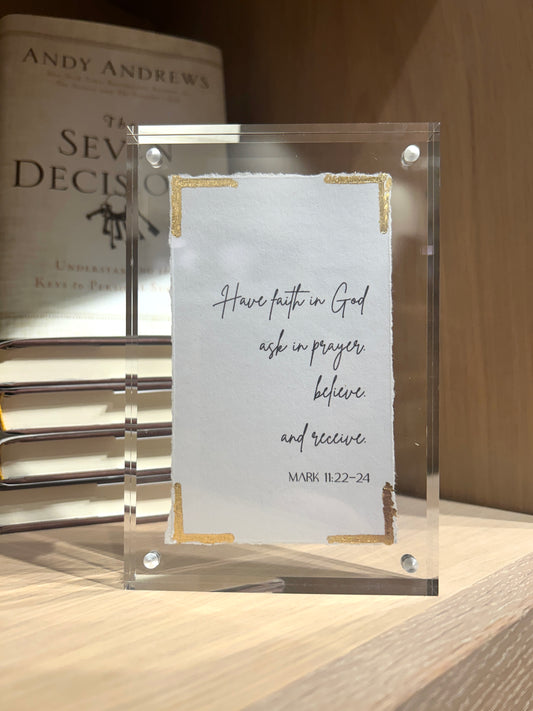 ANDY ANDREWS
The
SEVEN
DECISIONS
UNDERSTANDING
KEYS TO
Have faith in God
ask in prayer.
believe.
and receive.
MARK 11:22-24